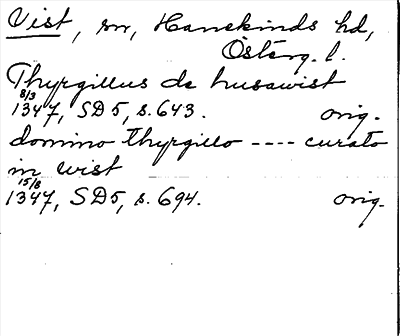 Vist, sn, Hanekinds hd,
Österg. l.
Thyrgillus de husawist
8/3
1347, SD5, s. 643. orig.
domino thyrgillo ---- curato
in wist
15/8
1347, SD5, s. 694. orig.